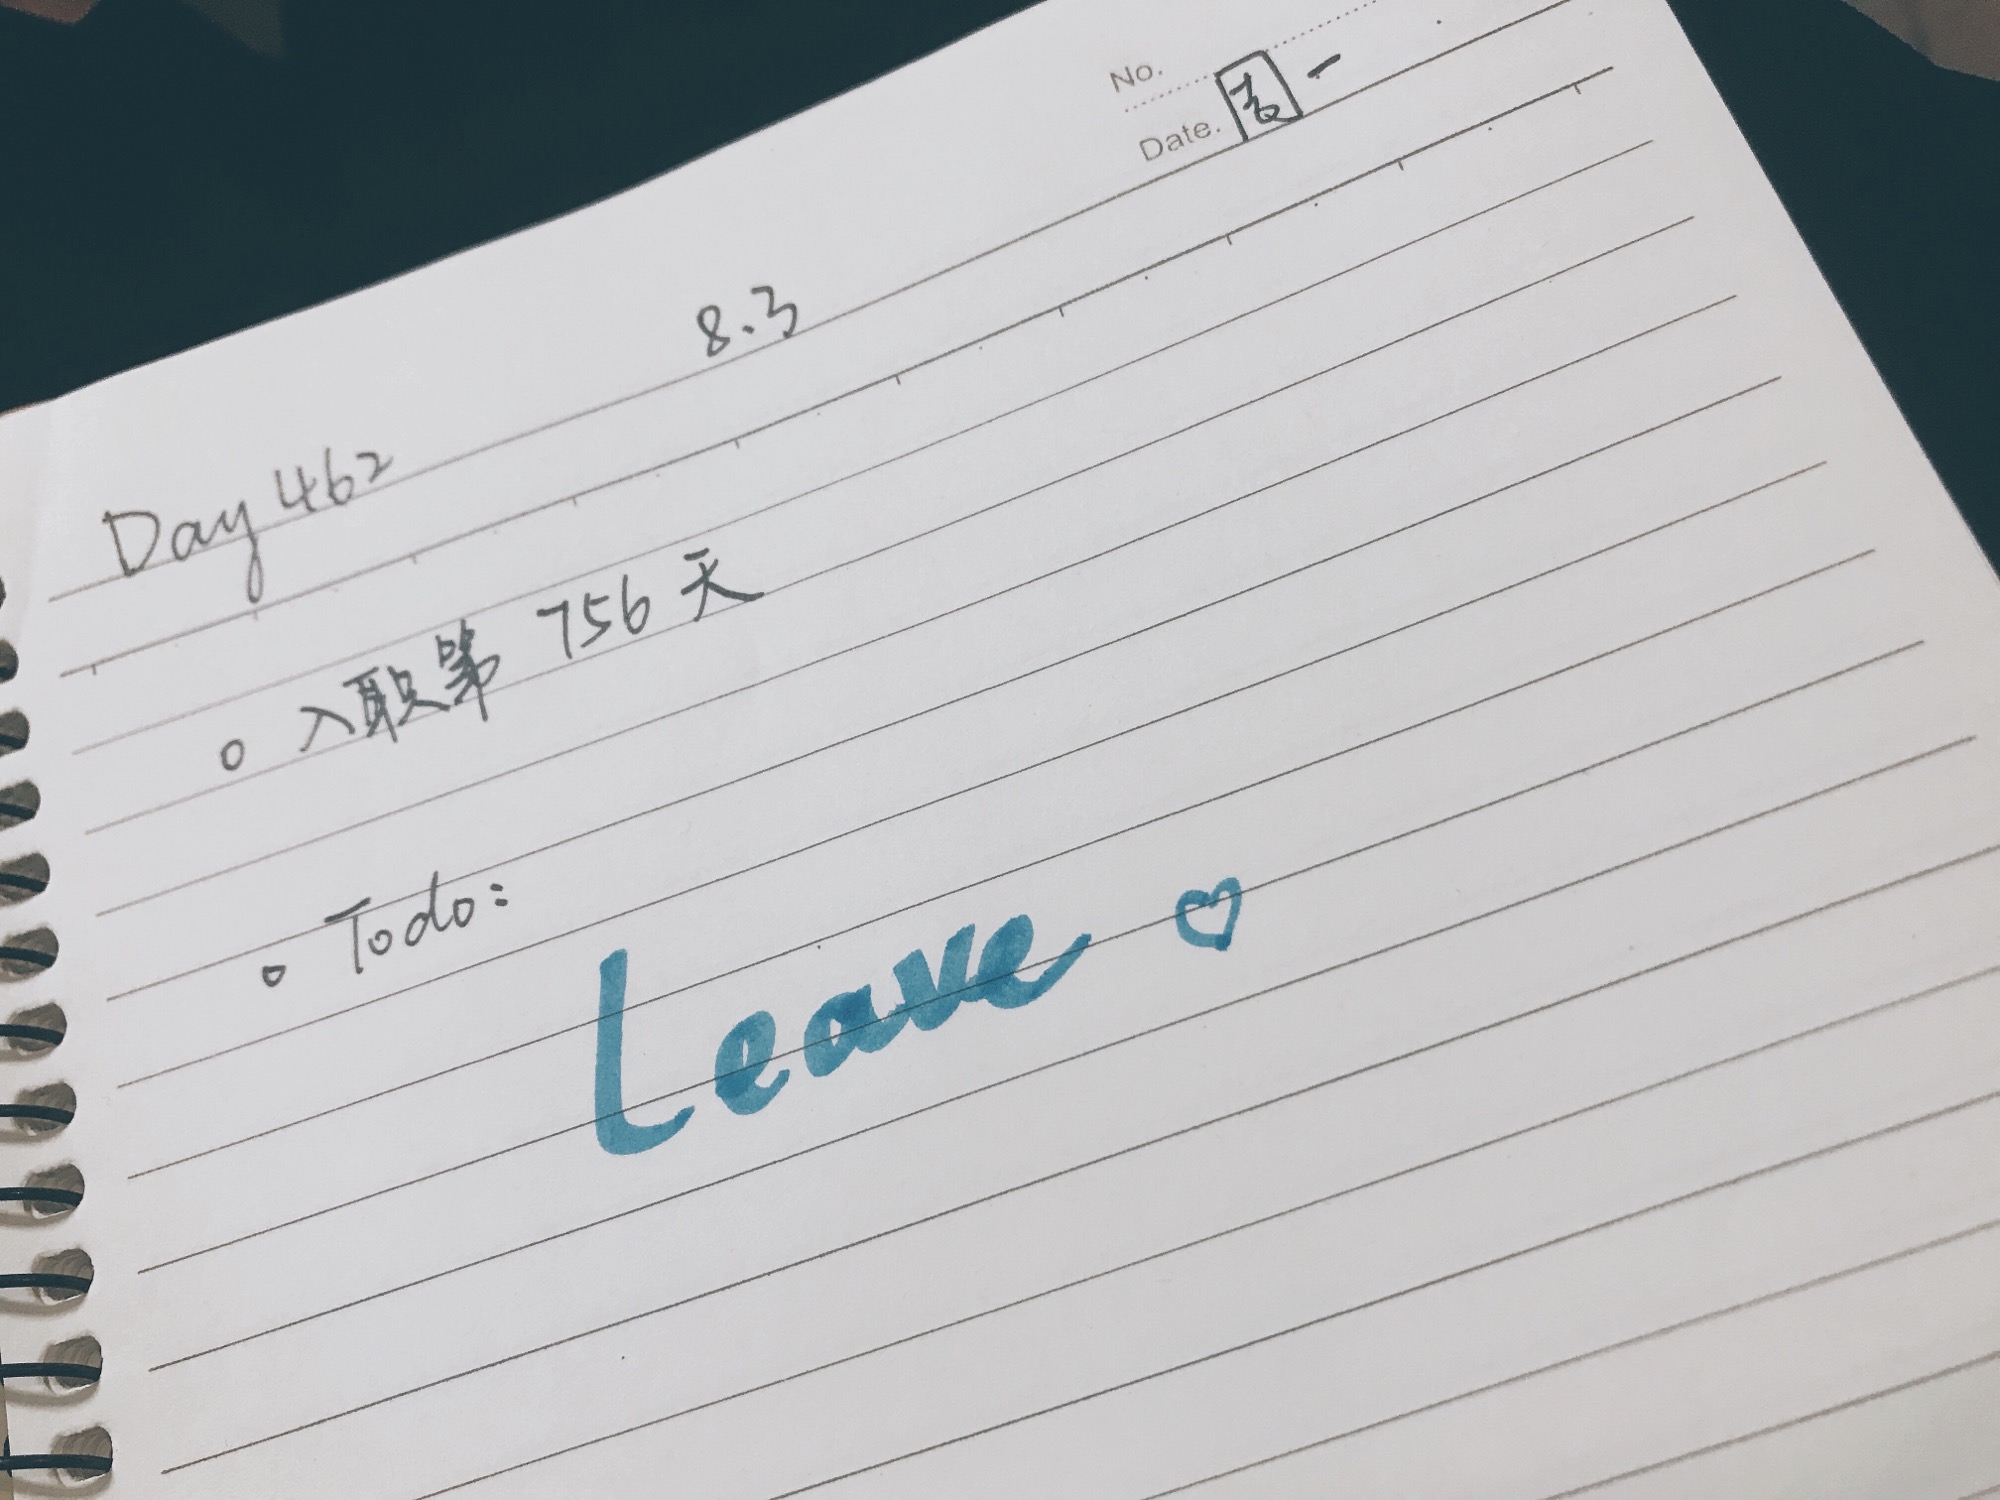 No.
Date. 周一
8.3
Day 462
入职第 756 天
Todo:
Leave